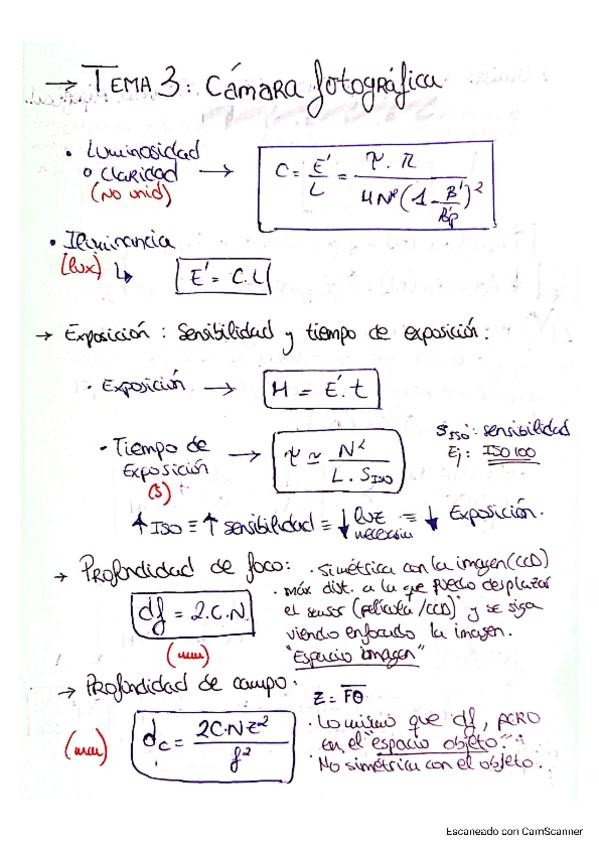 → TEMA 3: Cámara fotográfica
• Luminosidad
o claridad →
(No unid)
C = E'/L = τ·π / 4N²(1 - B'/B'p)²
• Iluminancia
(lux) ↳
E' = C.L
→ Exposición: sensibilidad y tiempo de exposición.
• Exposición → H = E'.t
• Tiempo de
Exposición →
(s)
τ ≃ N² / L . S_ISO
S_ISO: sensibilidad
Ej: ISO 100
↑ ISO ≡ ↑ sensibilidad ≡ ↓ luz necesaria ≡ ↓ Exposición.
→ Profundidad de foco:
df = 2.C.N.
(mm)
• simétrica con la imagen (CCD)
• máx dist. a la que puedo desplazar
el sensor (película/CCD) y se siga
viendo enfocada la imagen.
"Espacio imagen"
→ Profundidad de campo:
(mm)
dc = 2C·Nz² / f²
z = FO
• Lo mismo que df, pero
en el "espacio objeto".
• No simétrica con el objeto.
Escaneado con CamScanner